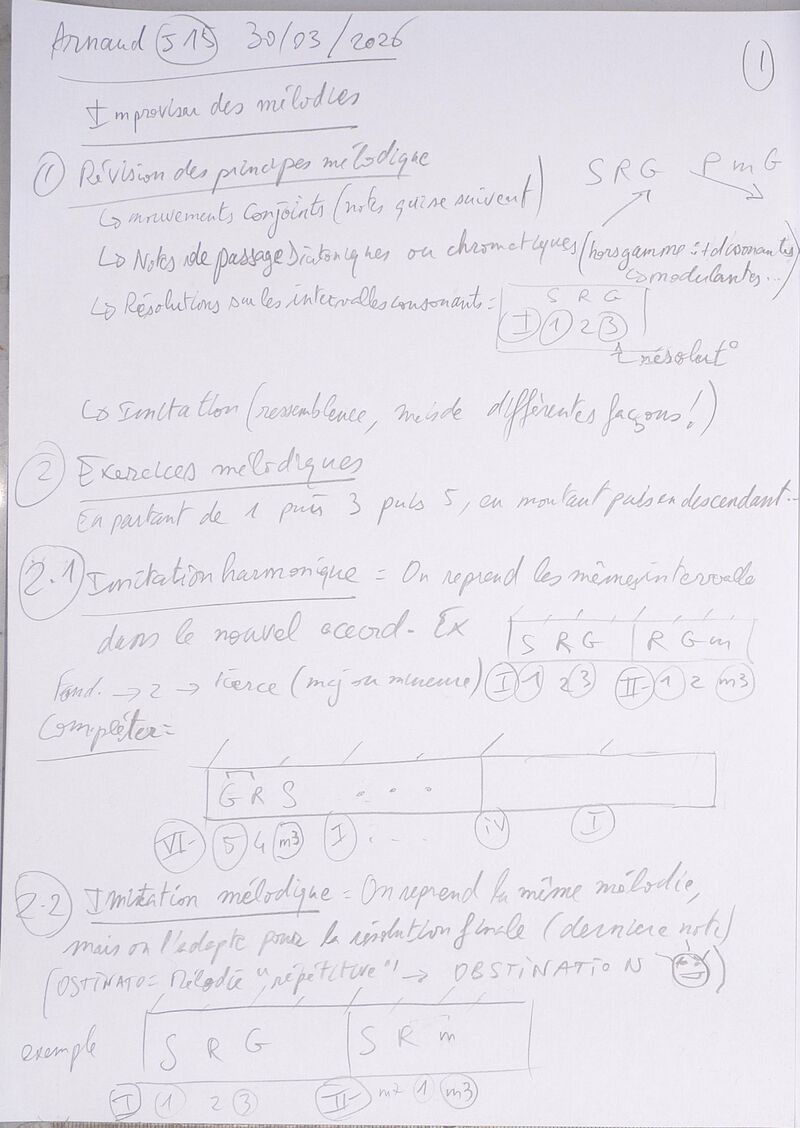 Arnaud 515 30/03/2026
1
Improviser des mélodies
1 Révision des principes mélodique
S R G P m G
↳ mouvements conjoints (notes qui se suivent)
↳ Notes de passage Diatoniques ou chromatiques (hors gamme : + dissonantes
↳ modulantes...)
↳ Résolutions sur les intervalles consonants =
S R G
I 1 2 3
↑ résolut°
↳ Imitation (ressemblence, mais de différentes façons !)
2 Exercices mélodiques
En partant de 1 puis 3 puis 5, en montant puis en descendant...
2.1 Imitation harmonique = On reprend les mêmes intervalle
dans le nouvel accord. Ex
S R G R G m
Fond. → 2 → tierce (maj ou mineure) I 1 2 3 II- 1 2 m3
Compléter =
G R S . . .
VI- 5 4 m3 I . . . IV I
2.2 Imitation mélodique = On reprend la même mélodie,
mais on l'adapte pour la résolution finale (dernière note)
(OSTINATO = Mélodie "répétitive" → OBSTINATION )
exemple
S R G S R m
I 1 2 3 II- m7 1 m3